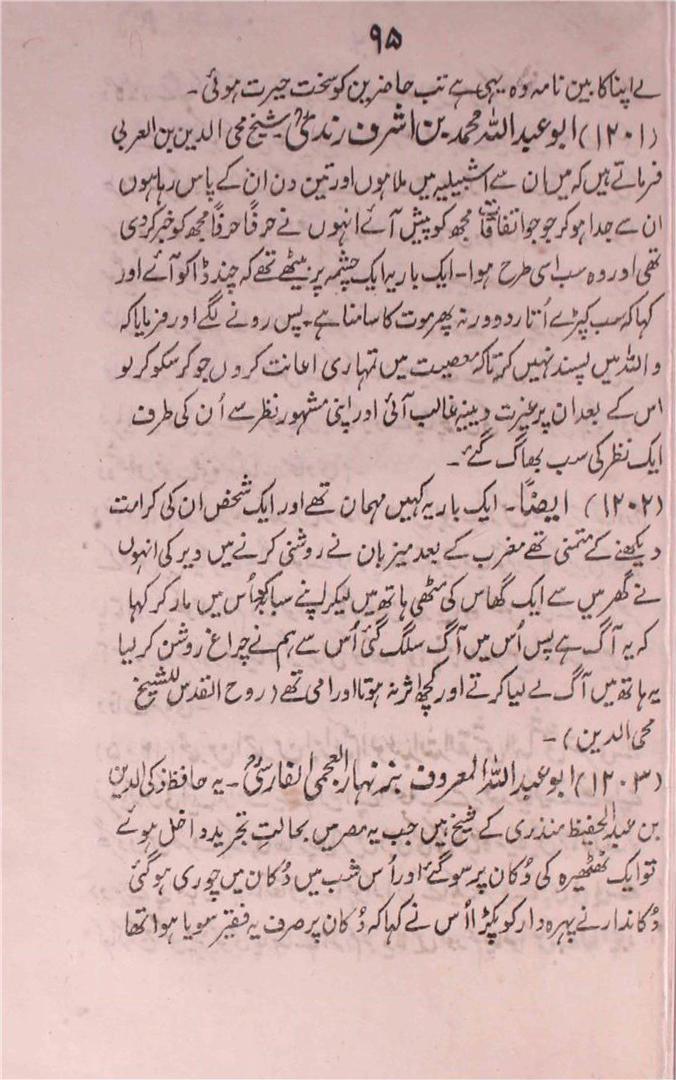 ۹۵
لے اپنا کابین نامہ وہ یہی ہے تب حاضرین کو سخت حیرت ہوئی۔
(۱۲۰۱) ابو عبداللہ محمد بن اشرف رندیؒ شیخ محی الدین بن العربی
فرماتے ہیں کہ میں ان سے اشبیلیہ میں ملا ہوں اور تین دن ان کے پاس رہا ہوں
ان سے جدا ہو کر جو جو اتفاقات مجھ کو پیش آئے انہوں نے حرفًا حرفًا مجھ کو خبر کردی
تھی اور وہ سب اسی طرح ہوا۔ ایک بار یہ ایک چشمہ پر بیٹھے تھے کہ چند ڈاکو آئے اور
کہا کہ سب کپڑے اُتار دو ورنہ پھر موت کا سامنا ہے۔ پس رونے لگے اور فرمایا کہ
واللہ میں پسند نہیں کرتا کہ معصیت میں تمہاری اعانت کروں جو کر سکو کر لو
اس کے بعد ان پر غیرت دینیہ غالب آئی اور اپنی مشہور نظر سے اُن کی طرف
ایک نظر کی سب بھاگ گئے۔
(۱۲۰۲) ایضًا۔ ایک بار یہ کہیں مہمان تھے اور ایک شخص ان کی کرامت
دیکھنے کے متمنی تھے مغرب کے بعد میزبان نے روشنی کرنے میں دیر کی انہوں
نے گھر میں سے ایک گھاس کی مٹھی ہاتھ میں لیکر اپنے سبابہ کو اُس میں مار کر کہا
کہ یہ آگ ہے پس اُس میں آگ سلگ گئی اُس سے ہم نے چراغ روشن کر لیا
یہ ہاتھ میں آگ لے لیا کرتے اور کچھ اثر نہ ہوتا اور امی تھے (روح القدس للشیخ
محی الدین)۔
(۱۲۰۳) ابو عبداللہ المعروف بہ نہار العجمی الفارسیؒ۔ یہ حافظ ذکی الدین
بن عبدالحفیظ منذری کے شیخ ہیں جب یہ مصر میں بحالتِ تجرید داخل ہوئے
تو ایک ٹھٹھیرہ کی دُکان پر سو گئے اور اُس شب میں دُکان میں چوری ہو گئی
دُکاندار نے پہرہ دار کو پکڑا اُس نے کہا کہ دُکان پر صرف یہ فقیر سویا ہوا تھا